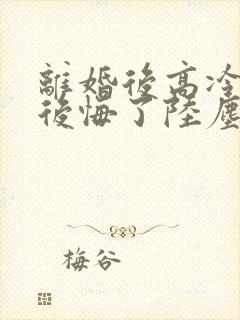 離婚後高冷
後悔了陸塵
梅谷